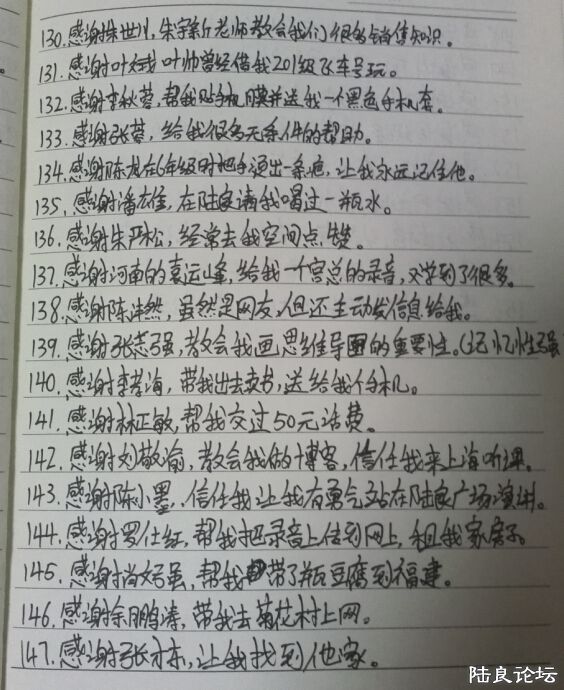 130.感谢朱世川,朱宇新老师教会我们很多销售知识。
131.感谢叶斌叶帅曾经借我201级飞车号玩。
132.感谢李秋蓉,帮我贴手机膜并送我一个黑色手机套。
133.感谢张蓉,给我很多无条件的帮助。
134.感谢陈龙在6年级时把手烫出一条疤,让我永远记住他。
135.感谢潘雄,在陆良请我喝过一瓶水。
136.感谢朱严松,经常去我空间点赞。
137.感谢河南的袁运峰,给我一个宫总的录音,又学到了很多。
138.感谢陈沣然,虽然是网友,但还主动发信息给我。
139.感谢张志强,教会我画思维导图的重要性。(记忆性强
140.感谢李孝海,带我出去卖书,送给我个手机。
141.感谢林正敏,帮我交过50元话费。
142.感谢刘敬渝,教会我做博客,信任我来上海听课。
143.感谢陈小墨,信任我让我有勇气站在陆良广场演讲。
144.感谢罗仕红,帮我把录音上传到网上,租我家房子。
145.感谢尚文强,帮我带了瓶豆腐到福建。
146.感谢余鹏涛,带我去菊花村上网。
147.感谢张才东,让我找到他家。
陆良论坛